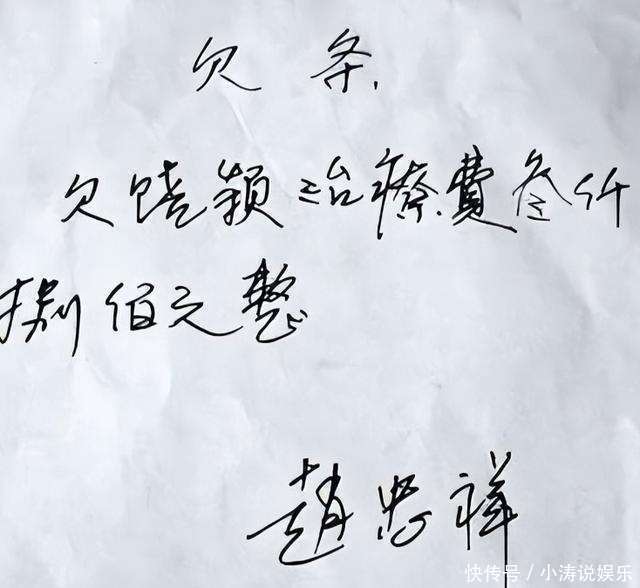 欠条
欠饶颖治療費叁仟
捌佰元整
趙忠祥
快传号/小涛说娱乐